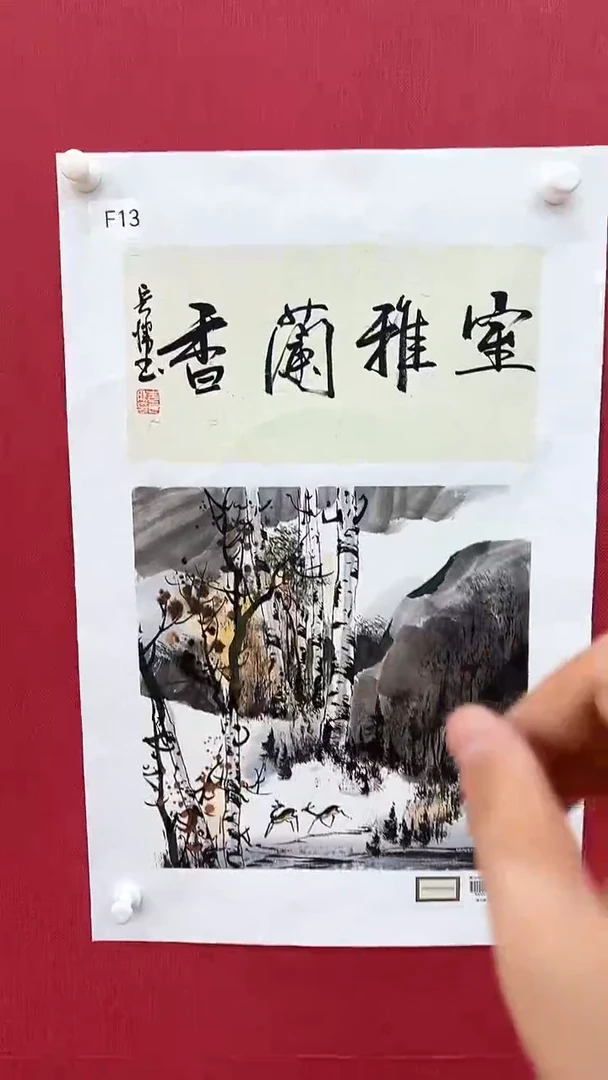 F13
室雅蘭香